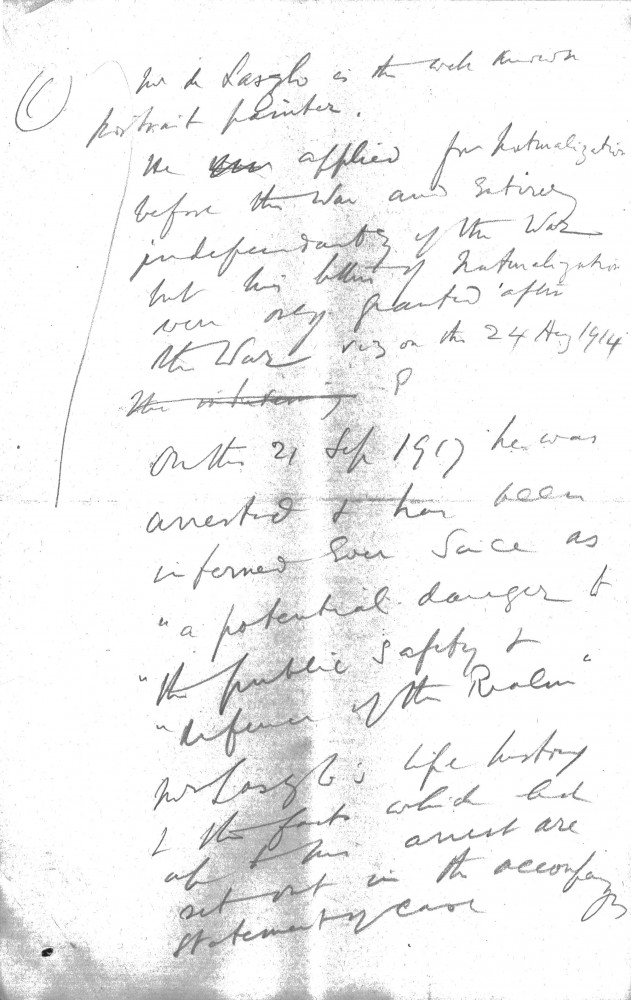 Mr de Laszlo is the well known
portrait painter.
He applied for Naturalization
before the War and Entirely
independently of the War
but his letters of Naturalization
were only granted after
the War viz on the 24 Aug 1914
On the 21 Sep 1917 he was
arrested & has been
interned Ever Since as
"a potential danger to
"the public safety &
"defence of the Realm"
Mr Laszlo's life history
& the facts which led
up to his arrest are
set out in the accompanying
statement of case